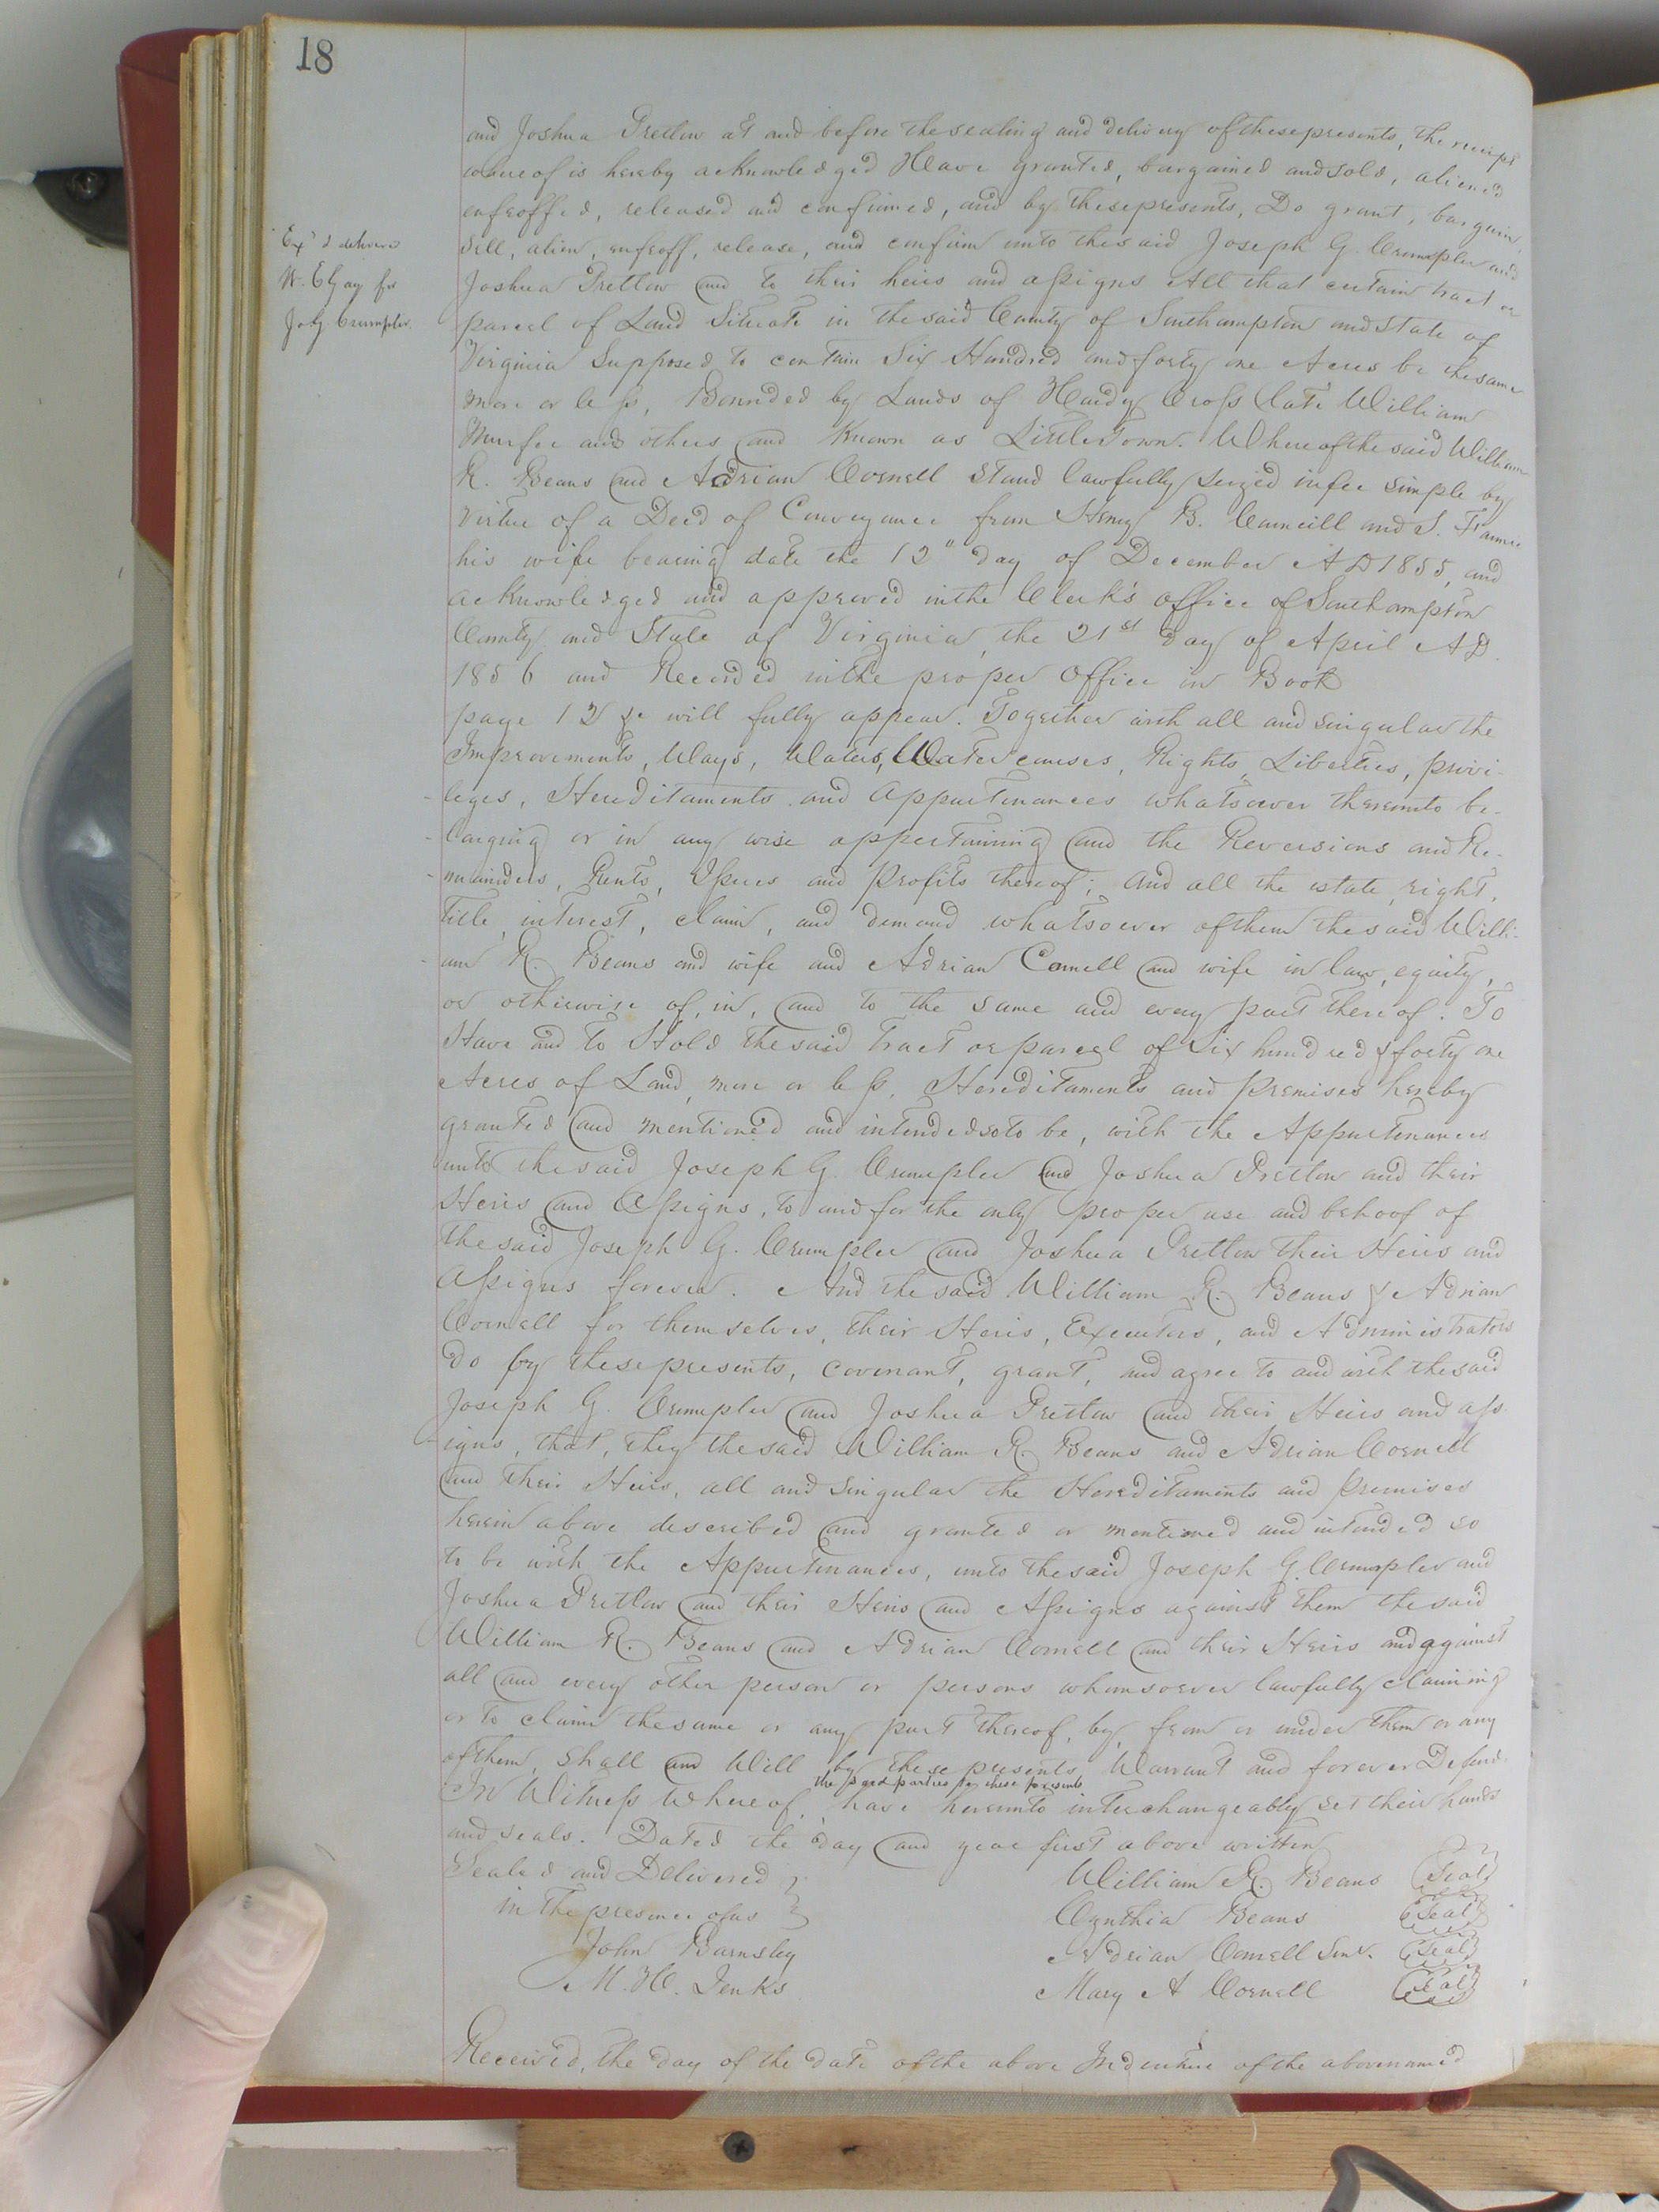 18
and Joshua Pretlow at and before the sealing and delivery of these presents, the receipt
whereof is hereby acknowledged Have granted, bargained and sold, aliened
enfeoffed, released and confirmed, and by these presents, Do grant, bargain,
Sell, alien, enfeoff, release, and confirm unto the said Joseph G. Crumpler and
Joshua Pretlow and to their heirs and assigns All that certain tract or
parcel of Land Situate in the said County of Southampton and State of
Virginia Supposed to contain Six Hundred and forty one Acres be the same
more or less, Bounded by Lands of Hardy Cross (late William
Murfee and others and Known as Little Town. Whereof the said William
R. Beans and Adrian Cornell Stand lawfully Seized in fee simple by
Virtue of a Deed of Conveyance from Henry B. Councill and S. Fannie
his wife bearing date the 12" day of December AD 1855, and
acknowledged and approved in the Clerk's office of Southampton
County and State of Virginia, the 21st day of April AD.
1856 and Recorded in the proper Office in Book
page 12 &c will fully appear. Together with all and singular the
Improvements, Ways, Waters, Water courses, Rights, Liberties, privi-
leges, Hereditaments and Appurtenances whatsoever thereunto be-
longing or in any wise appertaining and the Reversions and Re-
mainders, Rents, Issues and Profits thereof; and all the estate, right,
title, interest, claim, and demand whatsoever of them the said Willi-
am R. Beans and wife and Adrian Cornell and wife in law, equity,
or otherwise of, in, and to the same and every part thereof. To
Have and to Hold the said tract or parcel of Six hundred & forty one
Acres of Land, more or less, Hereditaments and premises hereby
granted and mentioned and intended so to be, with the Appurtenances
unto the said Joseph G. Crumpler and Joshua Pretlow and their
Heirs and Assigns, to and for the only proper use and behoof of
the said Joseph G. Crumpler and Joshua Pretlow their Heirs and
Assigns forever. And the said William R. Beans & Adrian
Cornell for themselves, their Heirs, Executors, and Administrators
do by these presents, covenant, grant, and agree to and with the said
Joseph G. Crumpler and Joshua Pretlow and their Heirs and ass-
igns, that, they the said William R. Beans and Adrian Cornell
and their Heirs, all and singular the Hereditaments and Premises
herein above described and granted or mentioned and intended so
to be with the Appurtenances, unto the said Joseph G. Crumpler and
Joshua Pretlow and their Heirs and Assigns against them the said
William R. Beans and Adrian Cornell and their Heirs and against
all and every other person or persons whomsoever lawfully claiming
or to claim the same or any part thereof, by, from or under them or any
of them, shall and Will by these presents Warrant and forever Defend.
the said parties by these presents
In Witness Whereof, have hereunto interchangeably set their hands
and seals. Dated the day and year first above written
Sealed and Delivered
in the presence of us
John Barnsley
M. H. Jenks
William R. Beans Seal
Cynthia Beans Seal
Adrian Cornell Senr. Seal
Mary A Cornell Seal
Received, the day of the date of the above Indenture of the abovenamed
Exd & delivered
for
Jos G. Crumpler.